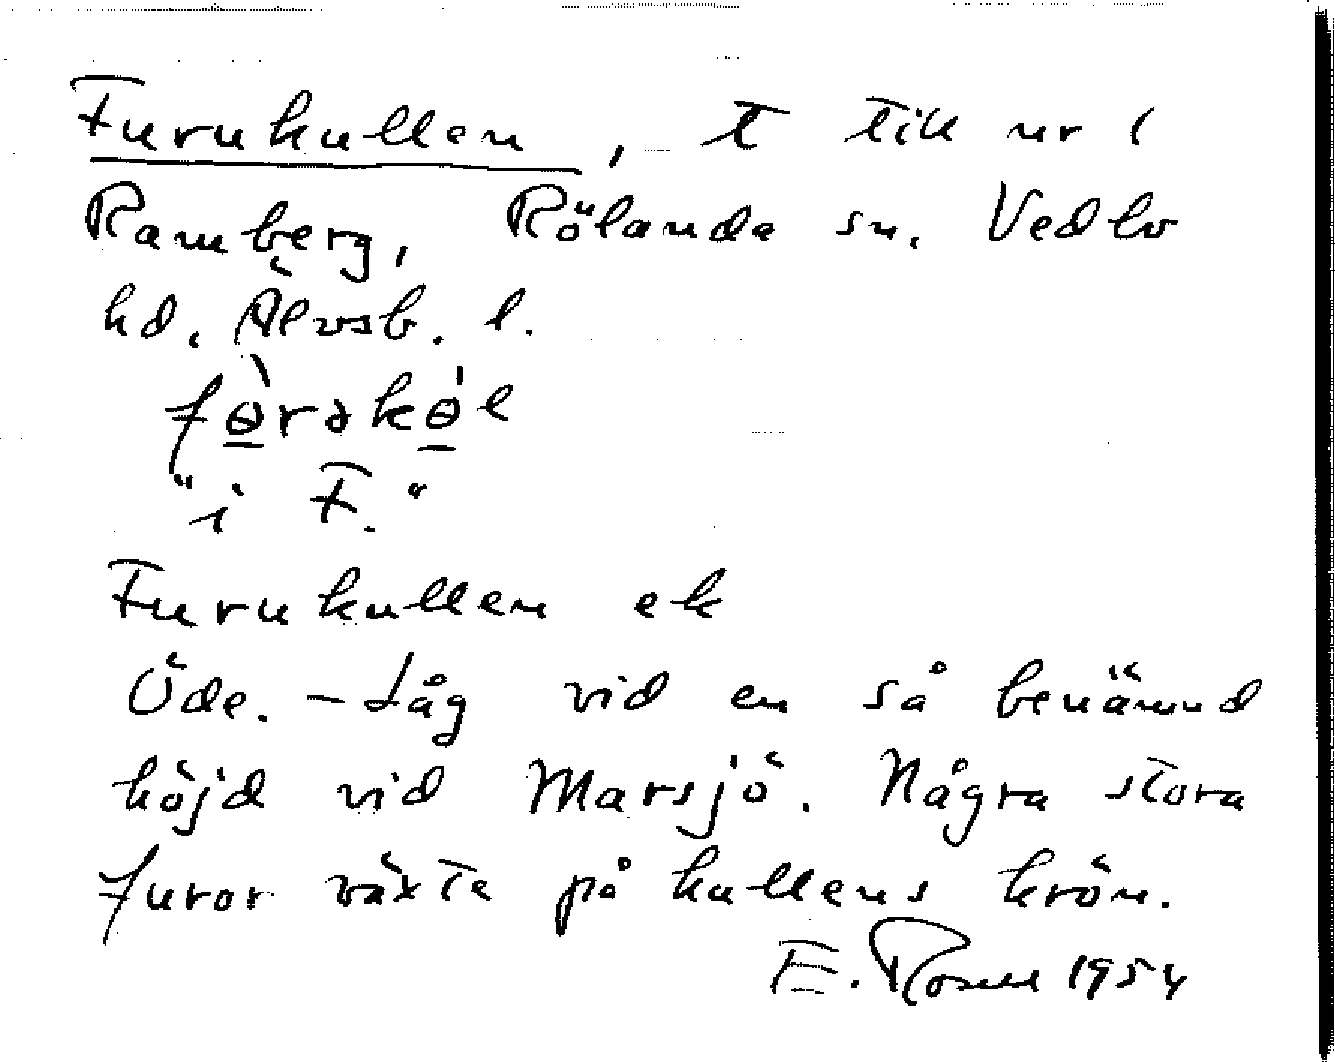 Furukullen, t till nr 1
Ramberg, Rölanda sn. Vedbo
hd. Älvsb. l.
fɵ̀rəkɵ́l
"i F."
Furukullen ek
Öde. – Låg vid en så benämnd
höjd vid Marsjö. Några stora
furor växte på kullens krön.
E. Rosell 1954